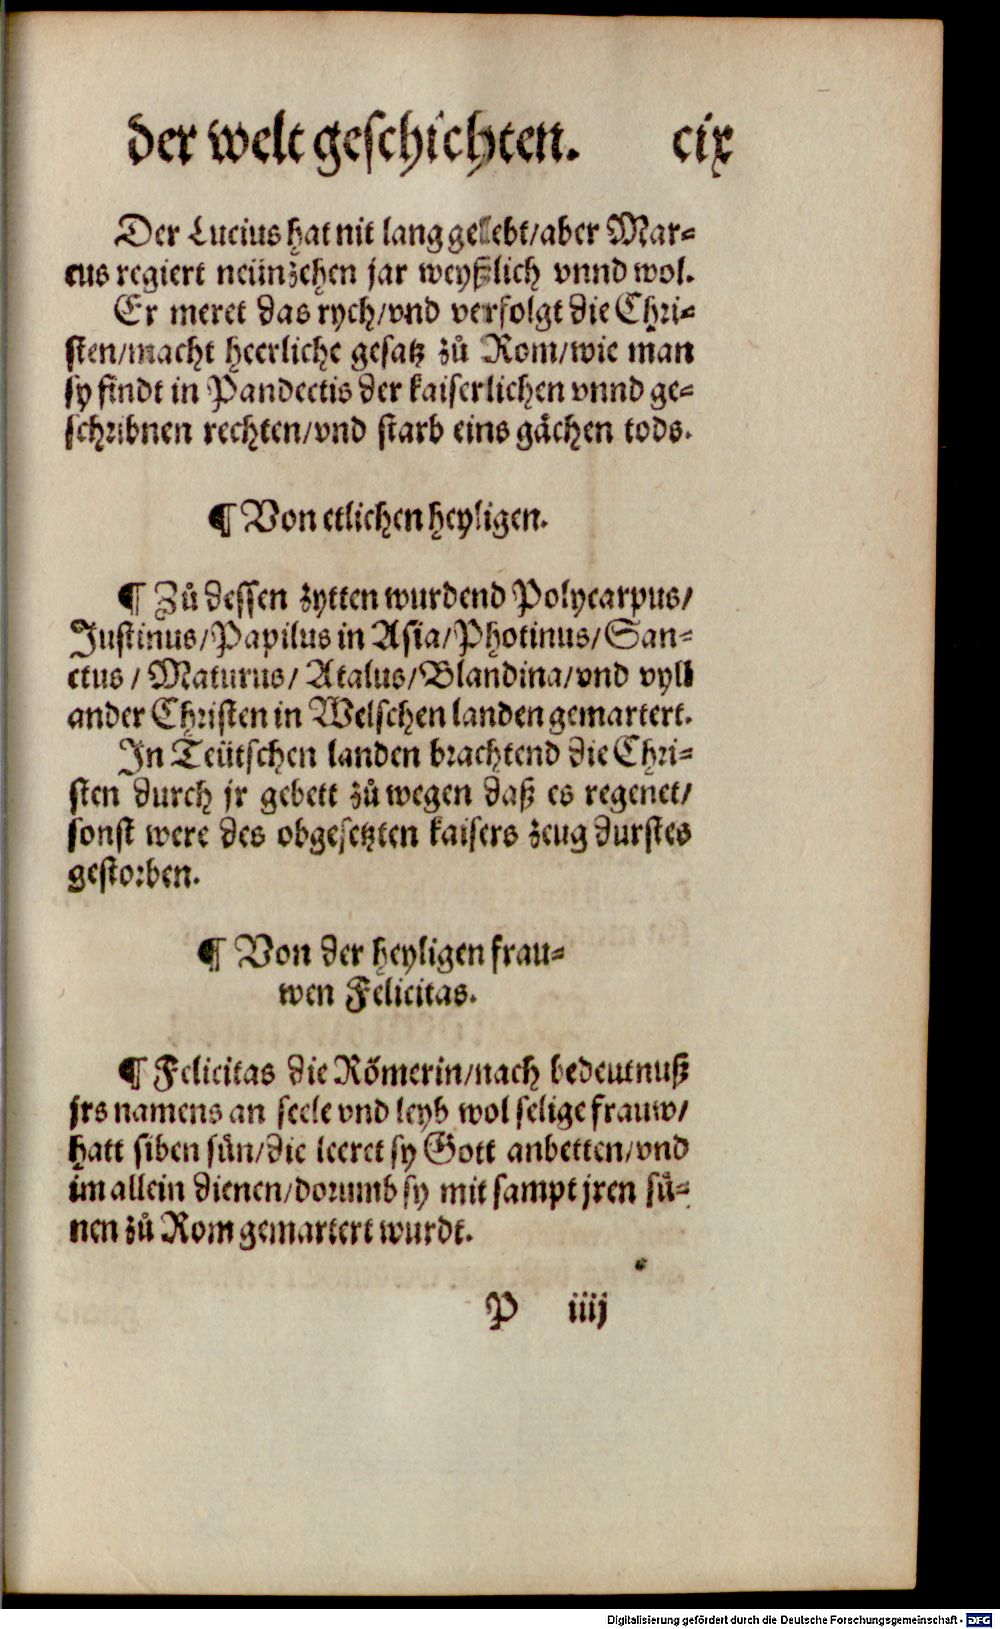 der welt geschichten. cix
Der Lucius hat nit lang gelebt/aber Mar⸗
cus regiert neünzehen jar weyßlich vnnd wol.
Er meret das rych/vnd verfolgt die Chri⸗
sten/macht heerliche gesatz zů Rom/wie man
sy findt in Pandectis der kaiserlichen vnnd ge⸗
schribnen rechten/vnd starb eins gächen tods.
¶ Von etlichen heyligen.
¶ Zů dessen zytten wurdend Polycarpus/
Justinus/Papilus in Asia/Photinus/San⸗
ctus/Maturus/Atalus/Blandina/vnd vyll
ander Christen in Welschen landen gemartert.
In Teütschen landen brachtend die Chri⸗
sten durch jr gebett zů wegen daß es regenet/
sonst were des obgesetzten kaisers zeug durstes
gestorben.
¶ Von der heyligen frau⸗
wen Felicitas.
¶ Felicitas die Römerin/nach bedeutnuß
jrs namens an seele vnd leyb wol selige frauw/
hatt siben sün/die leeret sy Gott anbetten/vnd
im allein dienen/dorumb sy mit sampt jren sü⸗
nen zů Rom gemartert wurdt.
P iiij
Digitalisierung gefördert durch die Deutsche Forschungsgemeinschaft - DFG